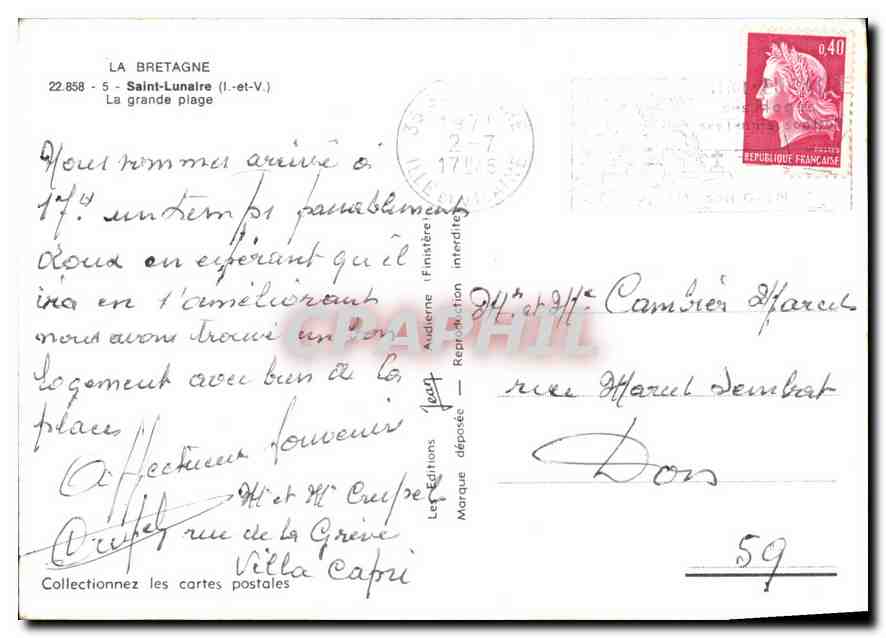 LA BRETAGNE
22.858 - 5 - Saint-Lunaire (I.-et-V.)
La grande plage
0,40
POSTES
REPUBLIQUE FRANÇAISE
35
1971
2-7
17
ILLE
Nous sommes arrivé à
17H un temps passablement
doux en espérant qu'il
ira en s'améliorant
nous avons trouvé un bon
logement avec bien de la
place
Affectueux souvenir
Mr et Me Crupel
Crupel rue de la Grève
Villa Capri
Collectionnez les cartes postales
Les Editions Jean Audierne (Finistère)
Marque déposée — Reproduction interdite
CPAPHIL
Mr et Me Cambier Marcel
rue Marcel Sembat
Don
59